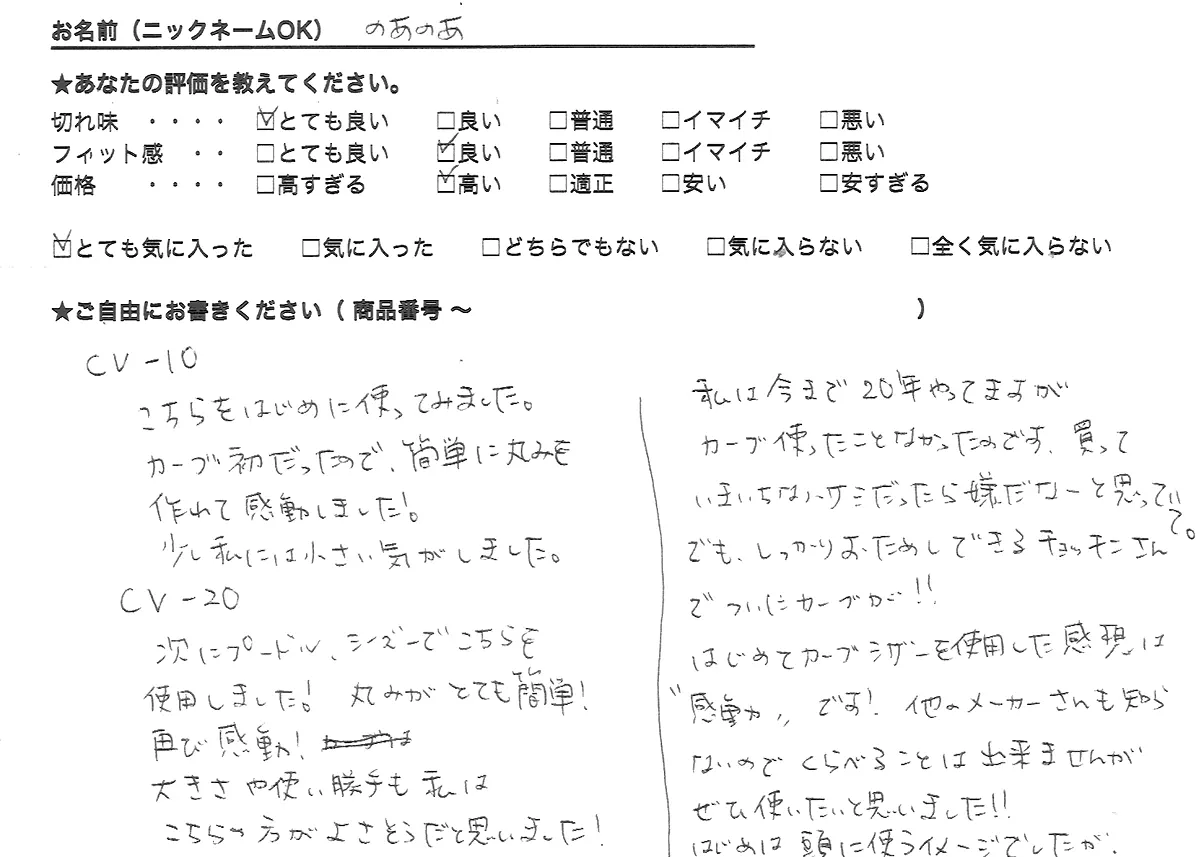 お名前（ニックネームOK） のあのあ
★あなたの評価を教えてください。
切れ味 ・・・・ ☑とても良い □良い □普通 □イマイチ □悪い
フィット感 ・・ □とても良い ☑良い □普通 □イマイチ □悪い
価格 ・・・・ □高すぎる ☑高い □適正 □安い □安すぎる
☑とても気に入った □気に入った □どちらでもない □気に入らない □全く気に入らない
★ご自由にお書きください（ 商品番号 〜 ）
CV-10
こちらをはじめに使ってみました。
カーブ初だったので、簡単に丸みを
作れて感動しました!
少し私には小さい気がしました。
CV-20
次にプードル、シーズーでこちらを
使用しました! 丸みがとても簡単!
再び感動!
大きさや使い勝手も私は
こちらの方がよさそうだと思いました!
私は今まで20年やってますが
カーブ使ったことなかったのです、買って
いまいちなハサミだったら嫌だなーと思っていて。
でも、しっかりおためしできるチョッキンさん
でついにカーブが!!
はじめてカーブシザーを使用した感想は
"感動"です! 他のメーカーさんも知ら
ないのでくらべることは出来ませんが
ぜひ使いたいと思いました!!
はじめは頭に使うイメージでしたが、